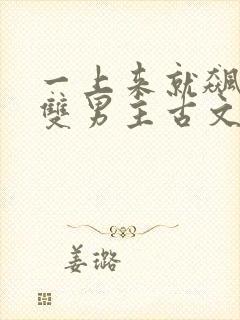 一上来就飆
雙男主古文
姜璐